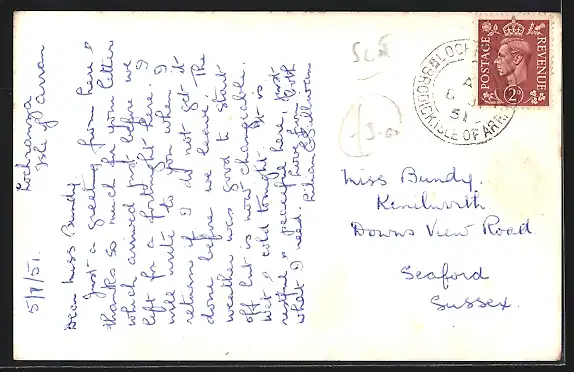 Lochranza
Isle of Arran
5/7/51.
Dear Miss Bundy,
Just a greeting from here &
thanks so much for your letter
which arrived just before we
left for a fortnight here. I
will write to you when I
return if I do not get it
done before we leave. The
weather was good to start
off but is now changeable.
Wet & cold tonight. It is
restful & peaceful here, just
what I need. Love from both
Lilian
POSTAGE
REVENUE
2D
LOCH
BRODICK ISLE OF ARR
51
Miss Bundy.
Kenilworth
Downs View Road
Seaford
Sussex.